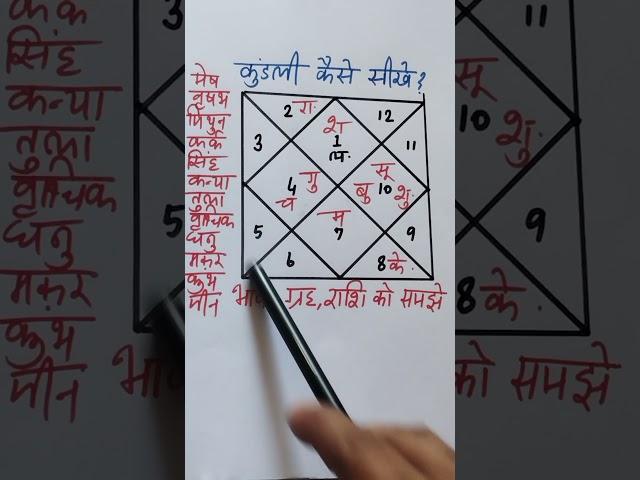 कुंडली कैसे सीखे?
मेष
वृषभ
मिथुन
कर्क
सिंह
कन्या
तुला
वृश्चिक
धनु
मकर
कुंभ
मीन
2 रा.
12
3
श
1
ल.
11
4 गु
च
सू
बु 10 शु.
5
म
7
9
6
8 के.
ग्रह, राशि को समझे